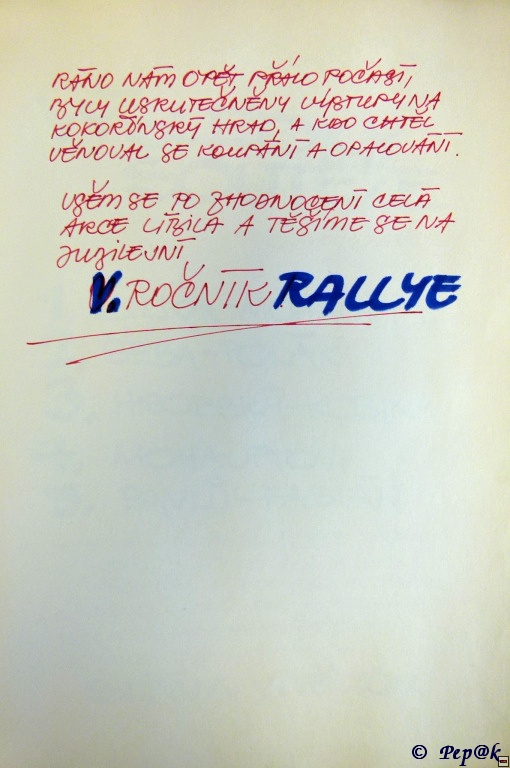 RÁNO NÁM OPĚT PŘÁLO POČASÍ,
BYLY USKUTEČNĚNY VÝSTUPY NA
KOKOŘÍNSKÝ HRAD, A KDO CHTĚL
VĚNOVAL SE KOUPÁNÍ A OPALOVÁNÍ.
VŠEM SE PO ZHODNOCENÍ CELÁ
AKCE LÍBILA A TĚŠÍME SE NA
JUBILEJNÍ
V. ROČNÍK RALLYE
© Pep@k